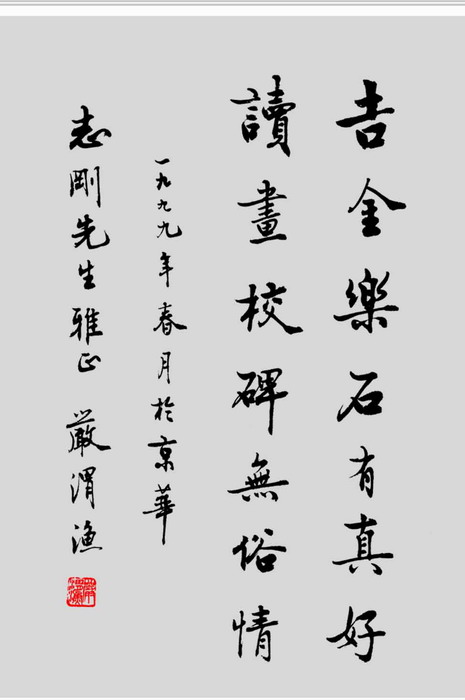 吉金樂石有真好
讀畫校碑無俗情
一九九九年春月於京華
志剛先生雅正 嚴渭漁